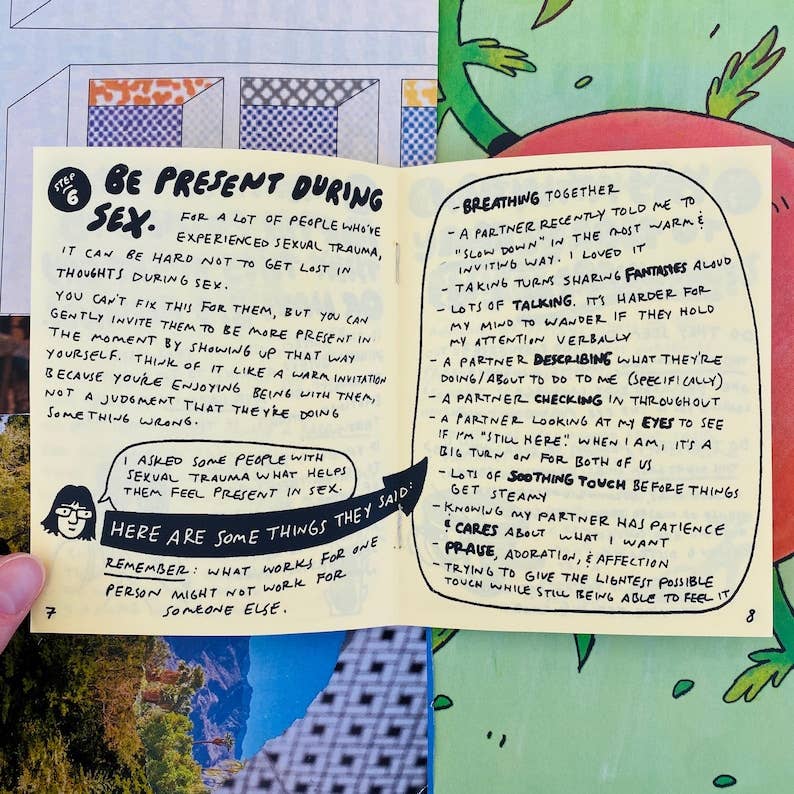 STEP 6
BE PRESENT DURING
SEX.
FOR A LOT OF PEOPLE WHO'VE
EXPERIENCED SEXUAL TRAUMA,
IT CAN BE HARD NOT TO GET LOST IN
THOUGHTS DURING SEX.
YOU CAN'T FIX THIS FOR THEM, BUT YOU CAN
GENTLY INVITE THEM TO BE MORE PRESENT IN
THE MOMENT BY SHOWING UP THAT WAY
YOURSELF. THINK OF IT LIKE A WARM INVITATION
BECAUSE YOU'RE ENJOYING BEING WITH THEM,
NOT A JUDGMENT THAT THEY'RE DOING
SOMETHING WRONG.
I ASKED SOME PEOPLE WITH
SEXUAL TRAUMA WHAT HELPS
THEM FEEL PRESENT IN SEX.
HERE ARE SOME THINGS THEY SAID:
REMEMBER: WHAT WORKS FOR ONE
PERSON MIGHT NOT WORK FOR
SOMEONE ELSE.
7
- BREATHING TOGETHER
- A PARTNER RECENTLY TOLD ME TO
"SLOW DOWN" IN THE MOST WARM &
INVITING WAY. I LOVED IT
- TAKING TURNS SHARING FANTASIES ALOUD
- LOTS OF TALKING. IT'S HARDER FOR
MY MIND TO WANDER IF THEY HOLD
MY ATTENTION VERBALLY
- A PARTNER DESCRIBING WHAT THEY'RE
DOING/ABOUT TO DO TO ME (SPECIFICALLY)
- A PARTNER CHECKING IN THROUGHOUT
- A PARTNER LOOKING AT MY EYES TO SEE
IF I'M "STILL HERE." WHEN I AM, IT'S A
BIG TURN ON FOR BOTH OF US
- LOTS OF SOOTHING TOUCH BEFORE THINGS
GET STEAMY
- KNOWING MY PARTNER HAS PATIENCE
& CARES ABOUT WHAT I WANT
- PRAISE, ADORATION, & AFFECTION
- TRYING TO GIVE THE LIGHTEST POSSIBLE
TOUCH WHILE STILL BEING ABLE TO FEEL IT
8